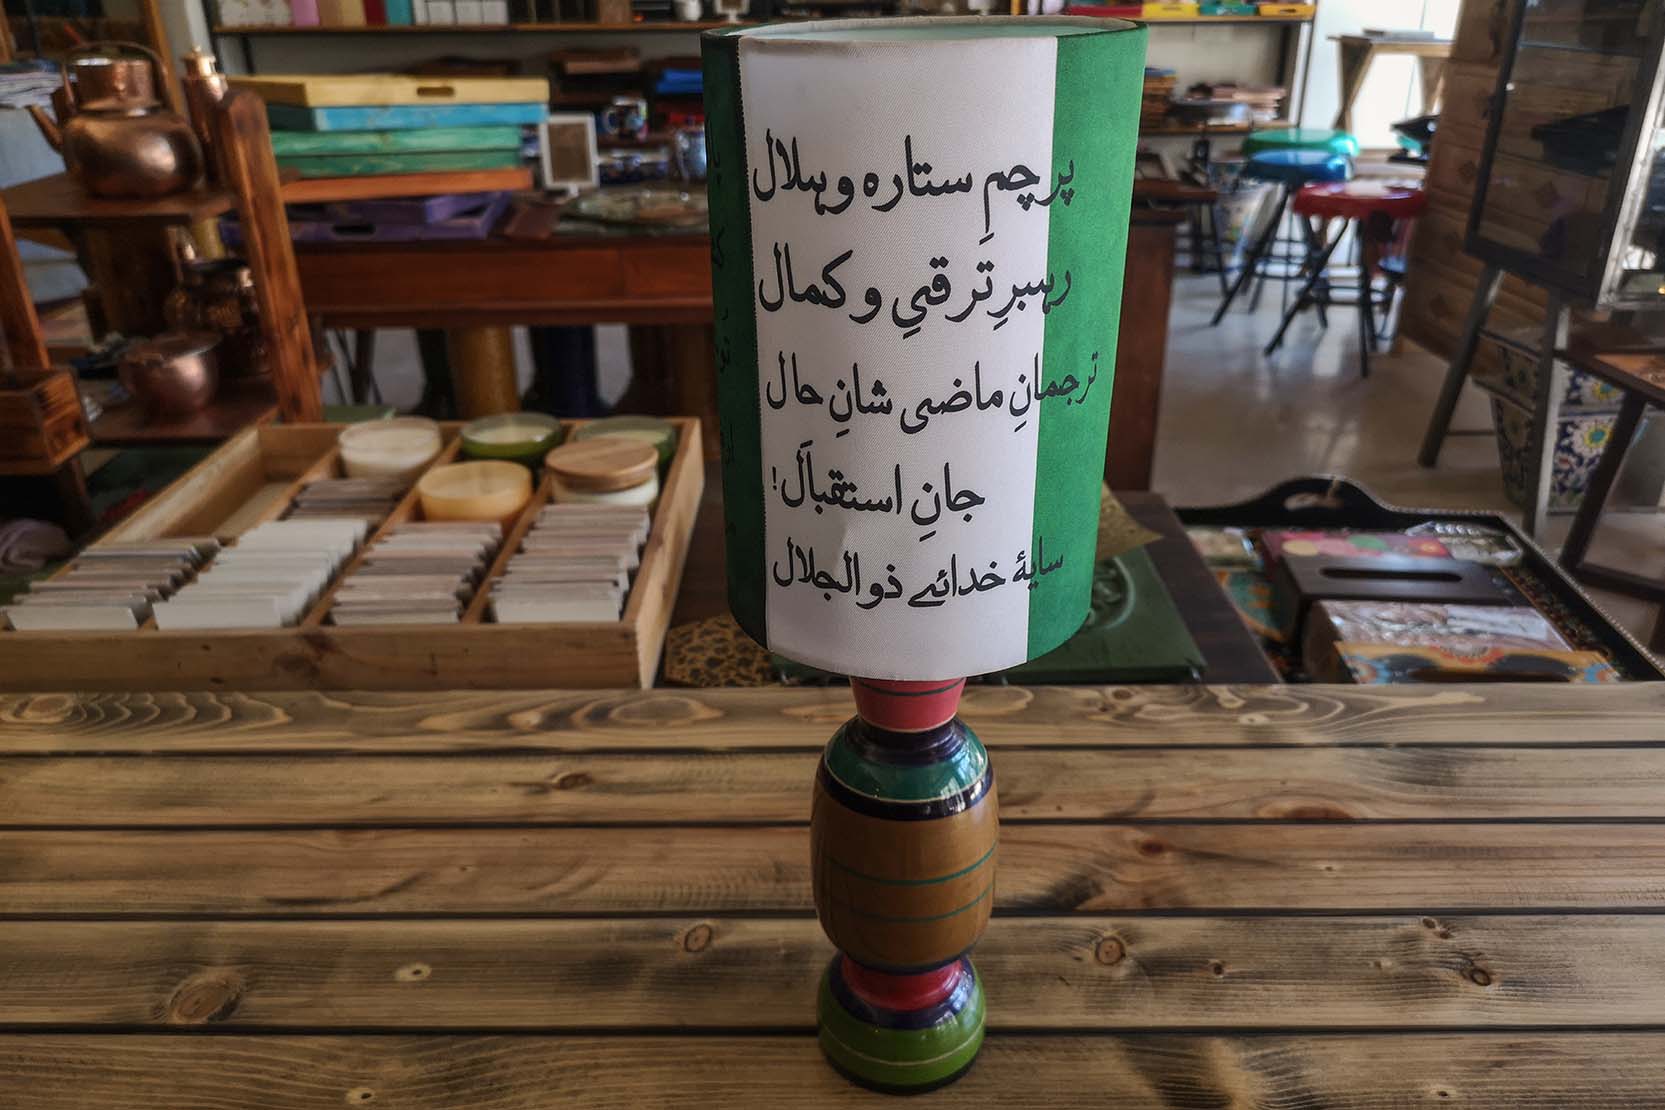 پرچمِ ستارہ و ہلال
رہبرِ ترقیِ و کمال
ترجمانِ ماضی شانِ حال
جانِ استقبالَ!
سایۂ خدائے ذوالجلال